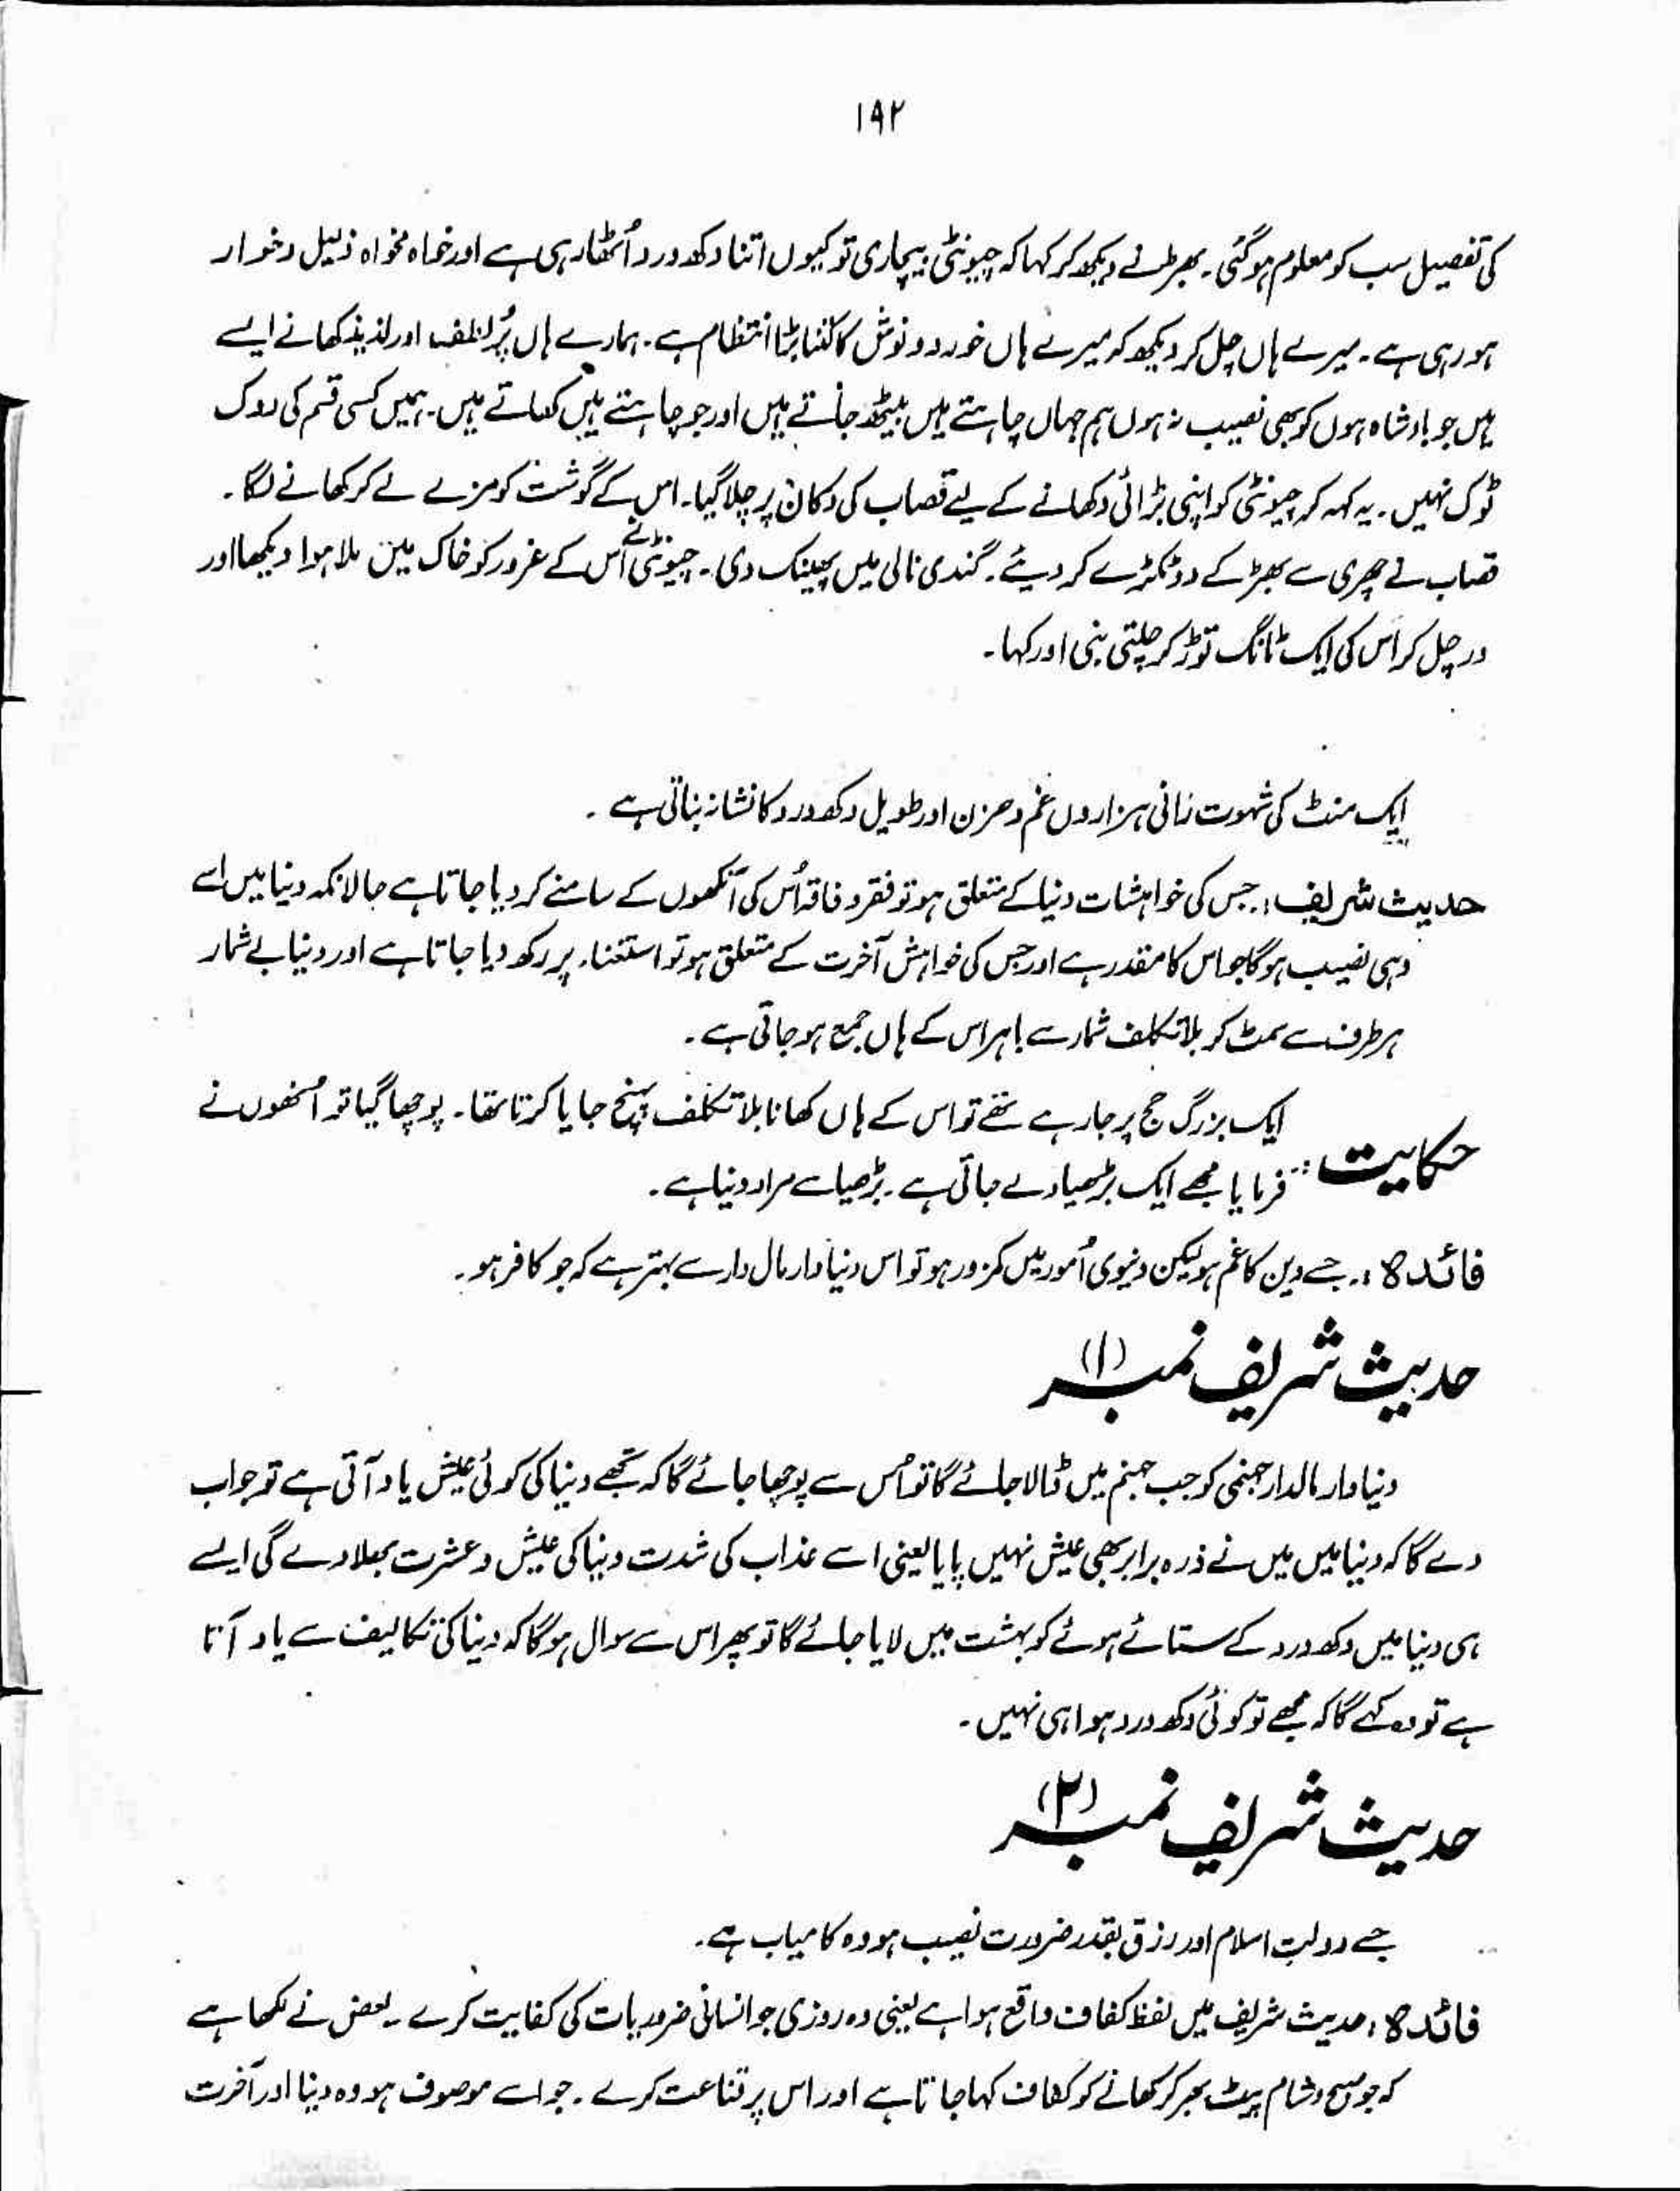 ۱۹۲
کی تفصیل سب کو معلوم ہوگئی۔ بھڑ نے دیکھ کر کہا کہ چیونٹی بیچاری تو کیوں اتنا دکھ درد اُٹھا رہی ہے اور خواہ مخواہ ذلیل و خوار
ہو رہی ہے۔ میرے ہاں چل کر دیکھو کہ میرے ہاں خورد و نوش کا کتنا بڑا انتظام ہے۔ ہمارے ہاں پُر لطف اور لذیذ کھانے ایسے
ہیں جو بادشاہ ہوں کو بھی نصیب نہ ہوں ہم جہاں چاہتے ہیں بیٹھ جاتے ہیں اور جو چاہتے ہیں کھاتے ہیں۔ ہمیں کسی قسم کی روک
ٹوک نہیں۔ یہ کہہ کر چیونٹی کو اپنی بڑائی دکھانے کے لیے قصاب کی دکان پر چلا گیا۔ اس کے گوشت کو مزے لے کر کھانے لگا۔
قصاب نے چھری سے بھڑ کے دو ٹکڑے کر دیئے۔ گندی نالی میں پھینک دی۔ چیونٹی نے اُس کے غرور کو خاک میں ملا ہوا دیکھا اور
در چل کر اس کی ایک ٹانگ توڑ کر چلتی بنی اور کہا۔
ایک منٹ کی شہوت زانی ہزاروں غم و حزن اور طویل دکھ درد کا نشانہ بناتی ہے۔
حدیث شریف:۔ جس کی خواہشات دنیا کے متعلق ہو تو فقر و فاقہ اُس کی آنکھوں کے سامنے کر دیا جاتا ہے حالانکہ دنیا میں اسے
وہی نصیب ہوگا جو اس کا مقدر ہے اور جس کی خواہش آخرت کے متعلق ہو تو استغناء پر رکھ دیا جاتا ہے اور دنیا بے شمار
ہر طرف سے سمٹ کر بلا تکلف شمار سے باہر اس کے ہاں جمع ہو جاتی ہے۔
حکایت:۔ ایک بزرگ حج پر جا رہے تھے تو اس کے ہاں کھانا بلا تکلف پہنچ جایا کرتا تھا۔ پوچھا گیا تو اُنھوں نے
فرمایا مجھے ایک بڑھیا دے جاتی ہے۔ بڑھیا سے مراد دنیا ہے۔
فائدہ:۔ جسے دین کا غم ہو لیکن دنیوی اُمور میں کمزور ہو تو اس دنیا دار مال دار سے بہتر ہے کہ جو کافر ہو۔
حدیث شریف نمبر (۱)
دنیا دار مالدار جہنمی کو جب جہنم میں ڈالا جائے گا تو اُس سے پوچھا جائے گا کہ تجھے دنیا کی کوئی عیش یاد آتی ہے تو جواب
دے گا کہ دنیا میں میں نے ذرہ برابر بھی عیش نہیں پایا یعنی اسے عذاب کی شدت دنیا کی عیش و عشرت بھلا دے گی ایسے
ہی دنیا میں دکھ درد کے ستائے ہوئے کو بہشت میں لایا جائے گا تو پھر اس سے سوال ہوگا کہ دنیا کی تکالیف سے یاد آتا
ہے تو وہ کہے گا کہ مجھے تو کوئی دکھ درد ہوا ہی نہیں۔
حدیث شریف نمبر (۲)
جسے دولتِ اسلام اور رزق بقدر ضرورت نصیب ہو وہ کامیاب ہے۔
فائدہ:۔ حدیث شریف میں لفظ کفاف واقع ہوا ہے یعنی وہ روزی جو انسانی ضروریات کی کفایت کرے۔ بعض نے لکھا ہے
کہ جو صبح و شام پیٹ بھر کر کھانے کو کفاف کہا جاتا ہے اور اس پر قناعت کرے۔ جو اسے موصوف ہو وہ دنیا اور آخرت